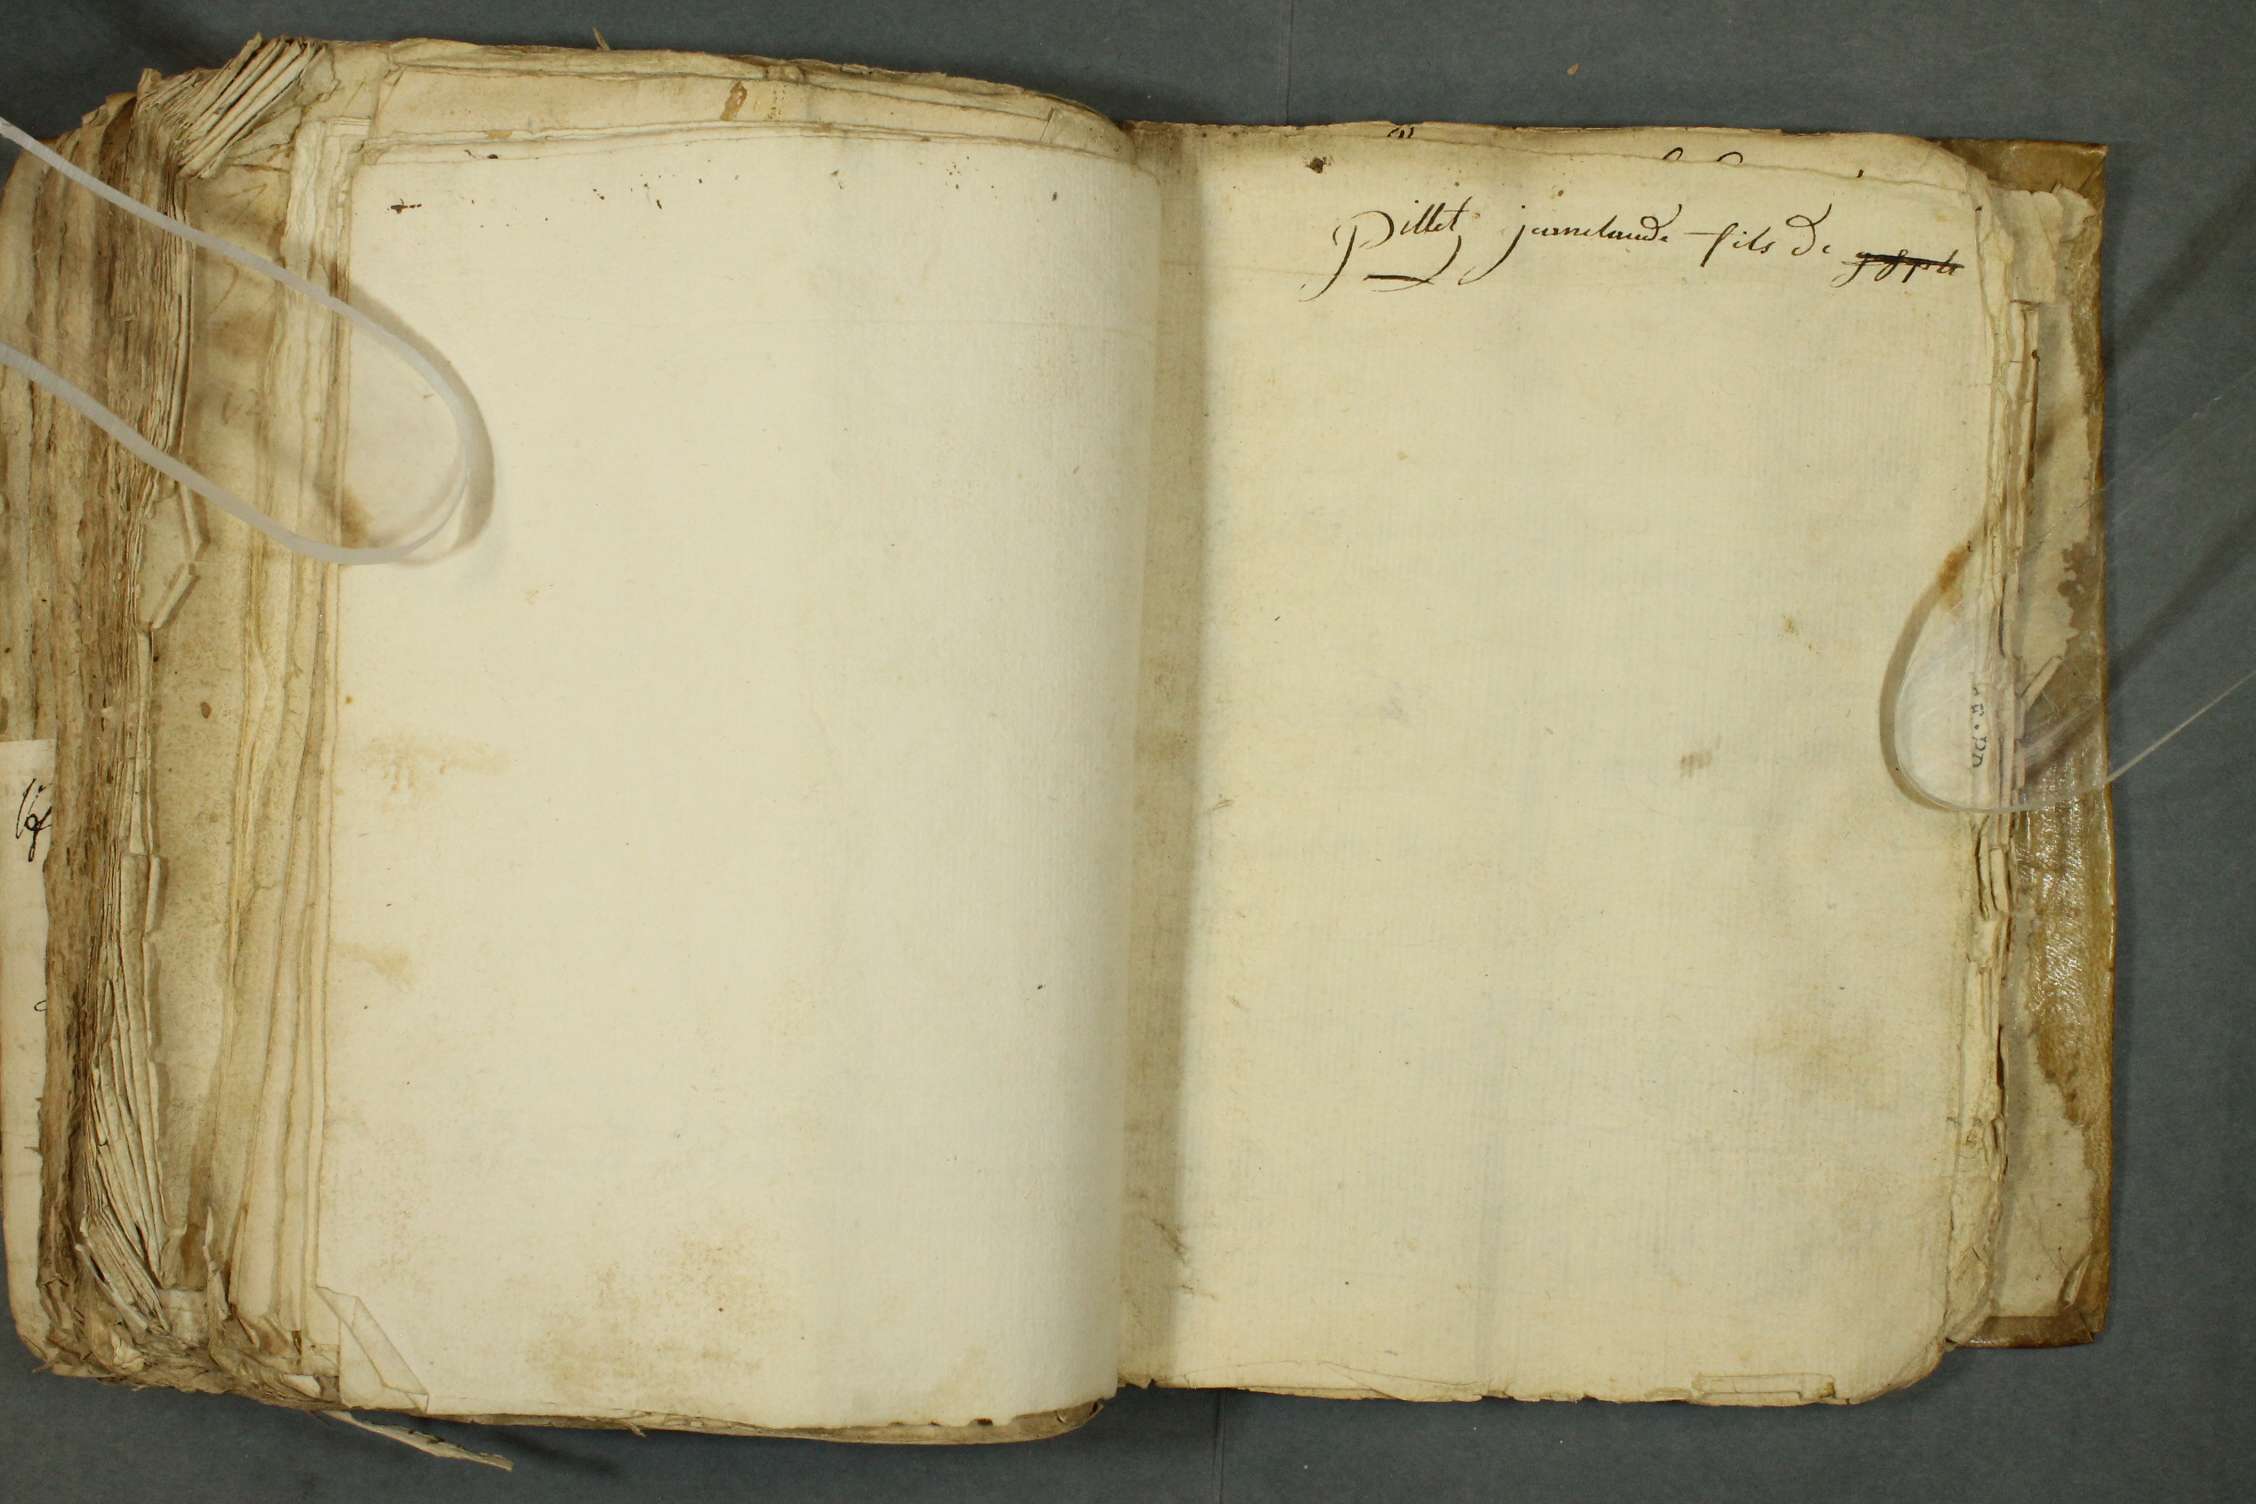 Pillet jeanclaude fils de joseph